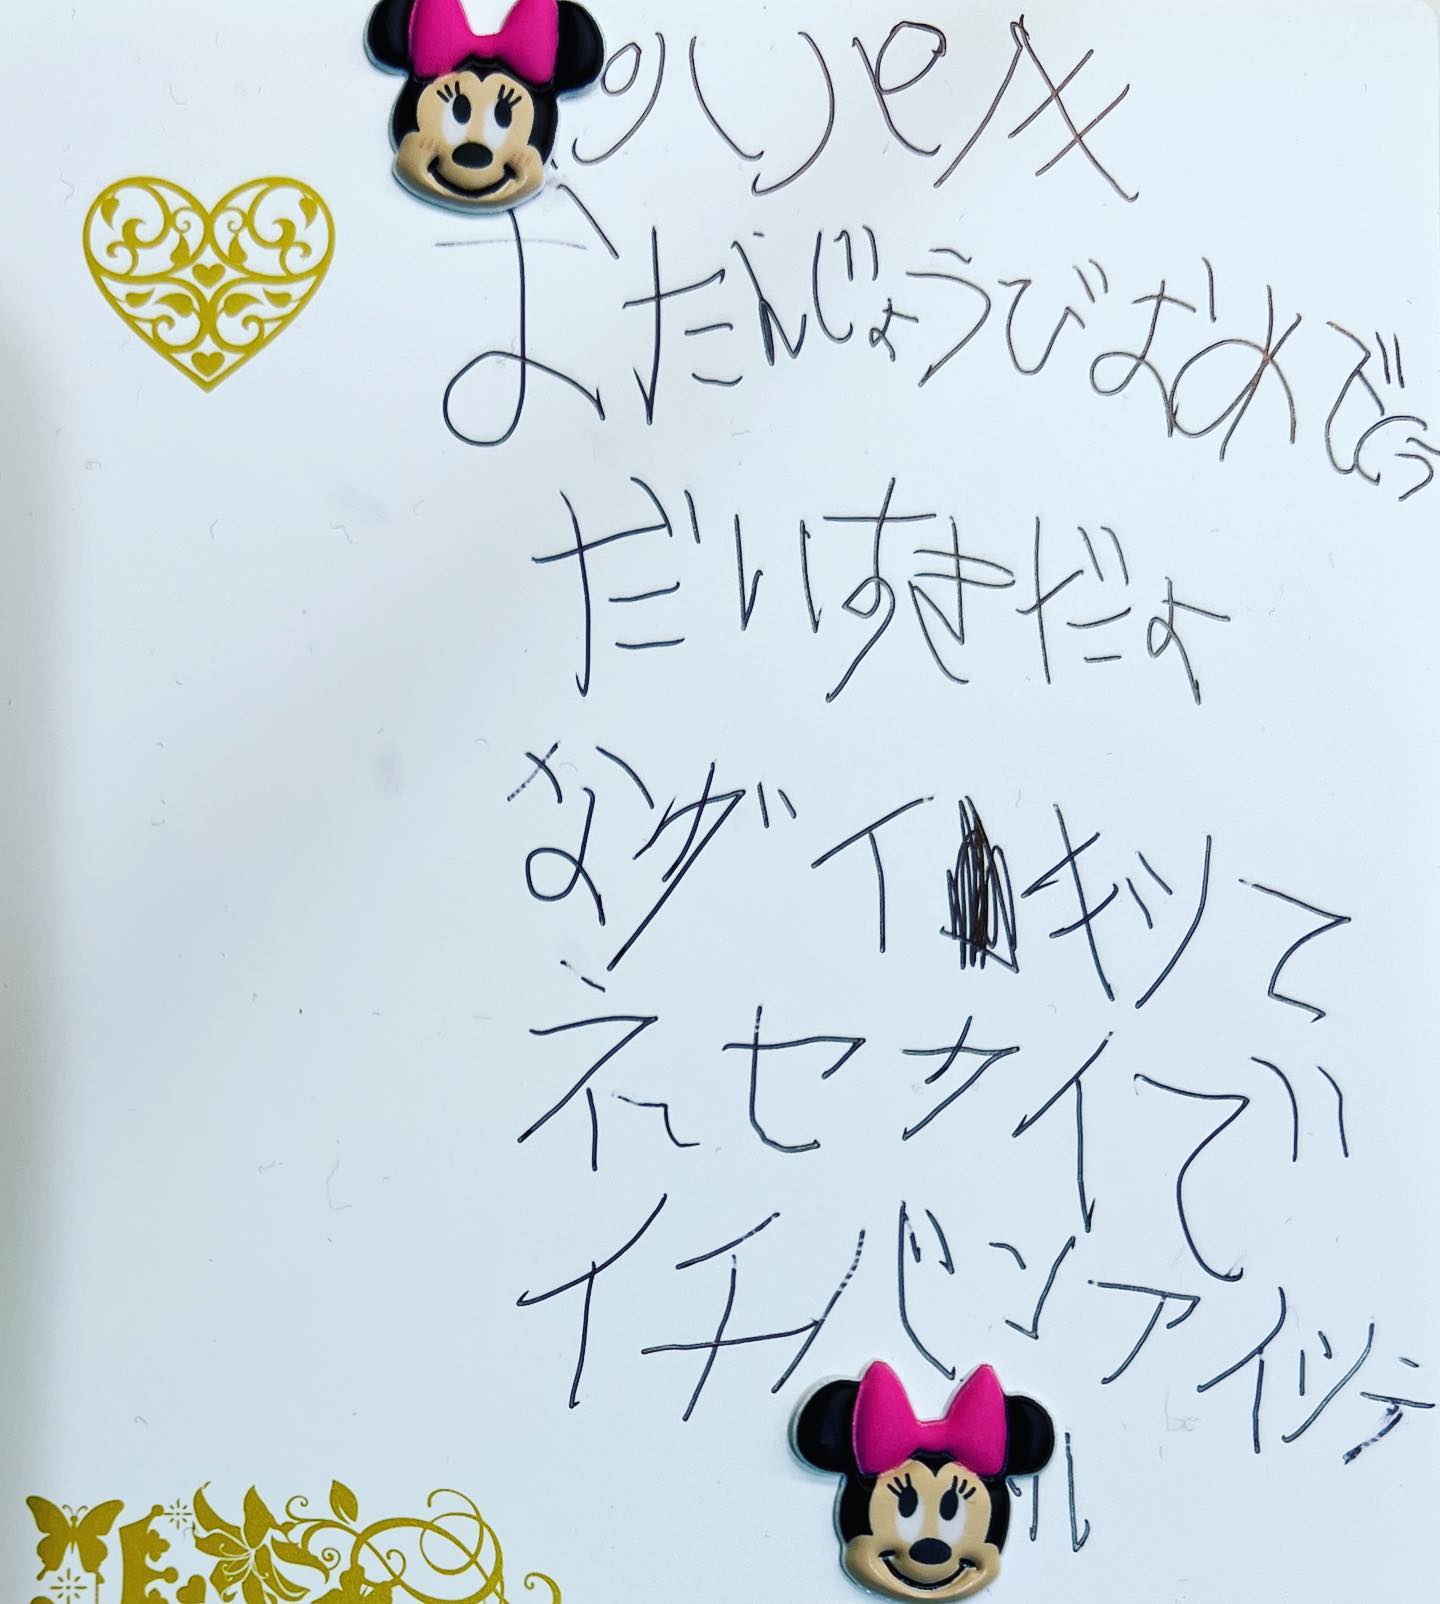 おたんじょうびおめでとう
だいすきだよ
ながイキシて
ネーセカイで
イチバンアイシテ
ル